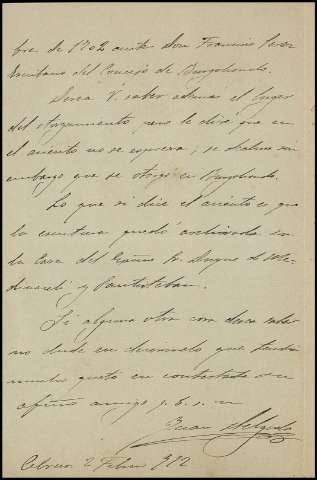 bre de 1702 ante Don Francisco Perez
Escribano del Concejo de Burgohondo.
Desea V. saber además el lugar
del otorgamiento pero le diré que en
el asiento no se expresa; se deduce sin
embargo que se otorgó en Burgohondo.
Lo que si dice el asiento es que
la escritura quedó archivada en
la Casa del Excmo Sr. Duque de Me-
dinaceli y Santisteban.
Si alguna otra cosa desea saber
no dude en decírmelo que tendrá
mucho gusto en contestarle su
afmo amigo q. b. s. m
Juan Delgado
Cebreros 2 Febrero 912